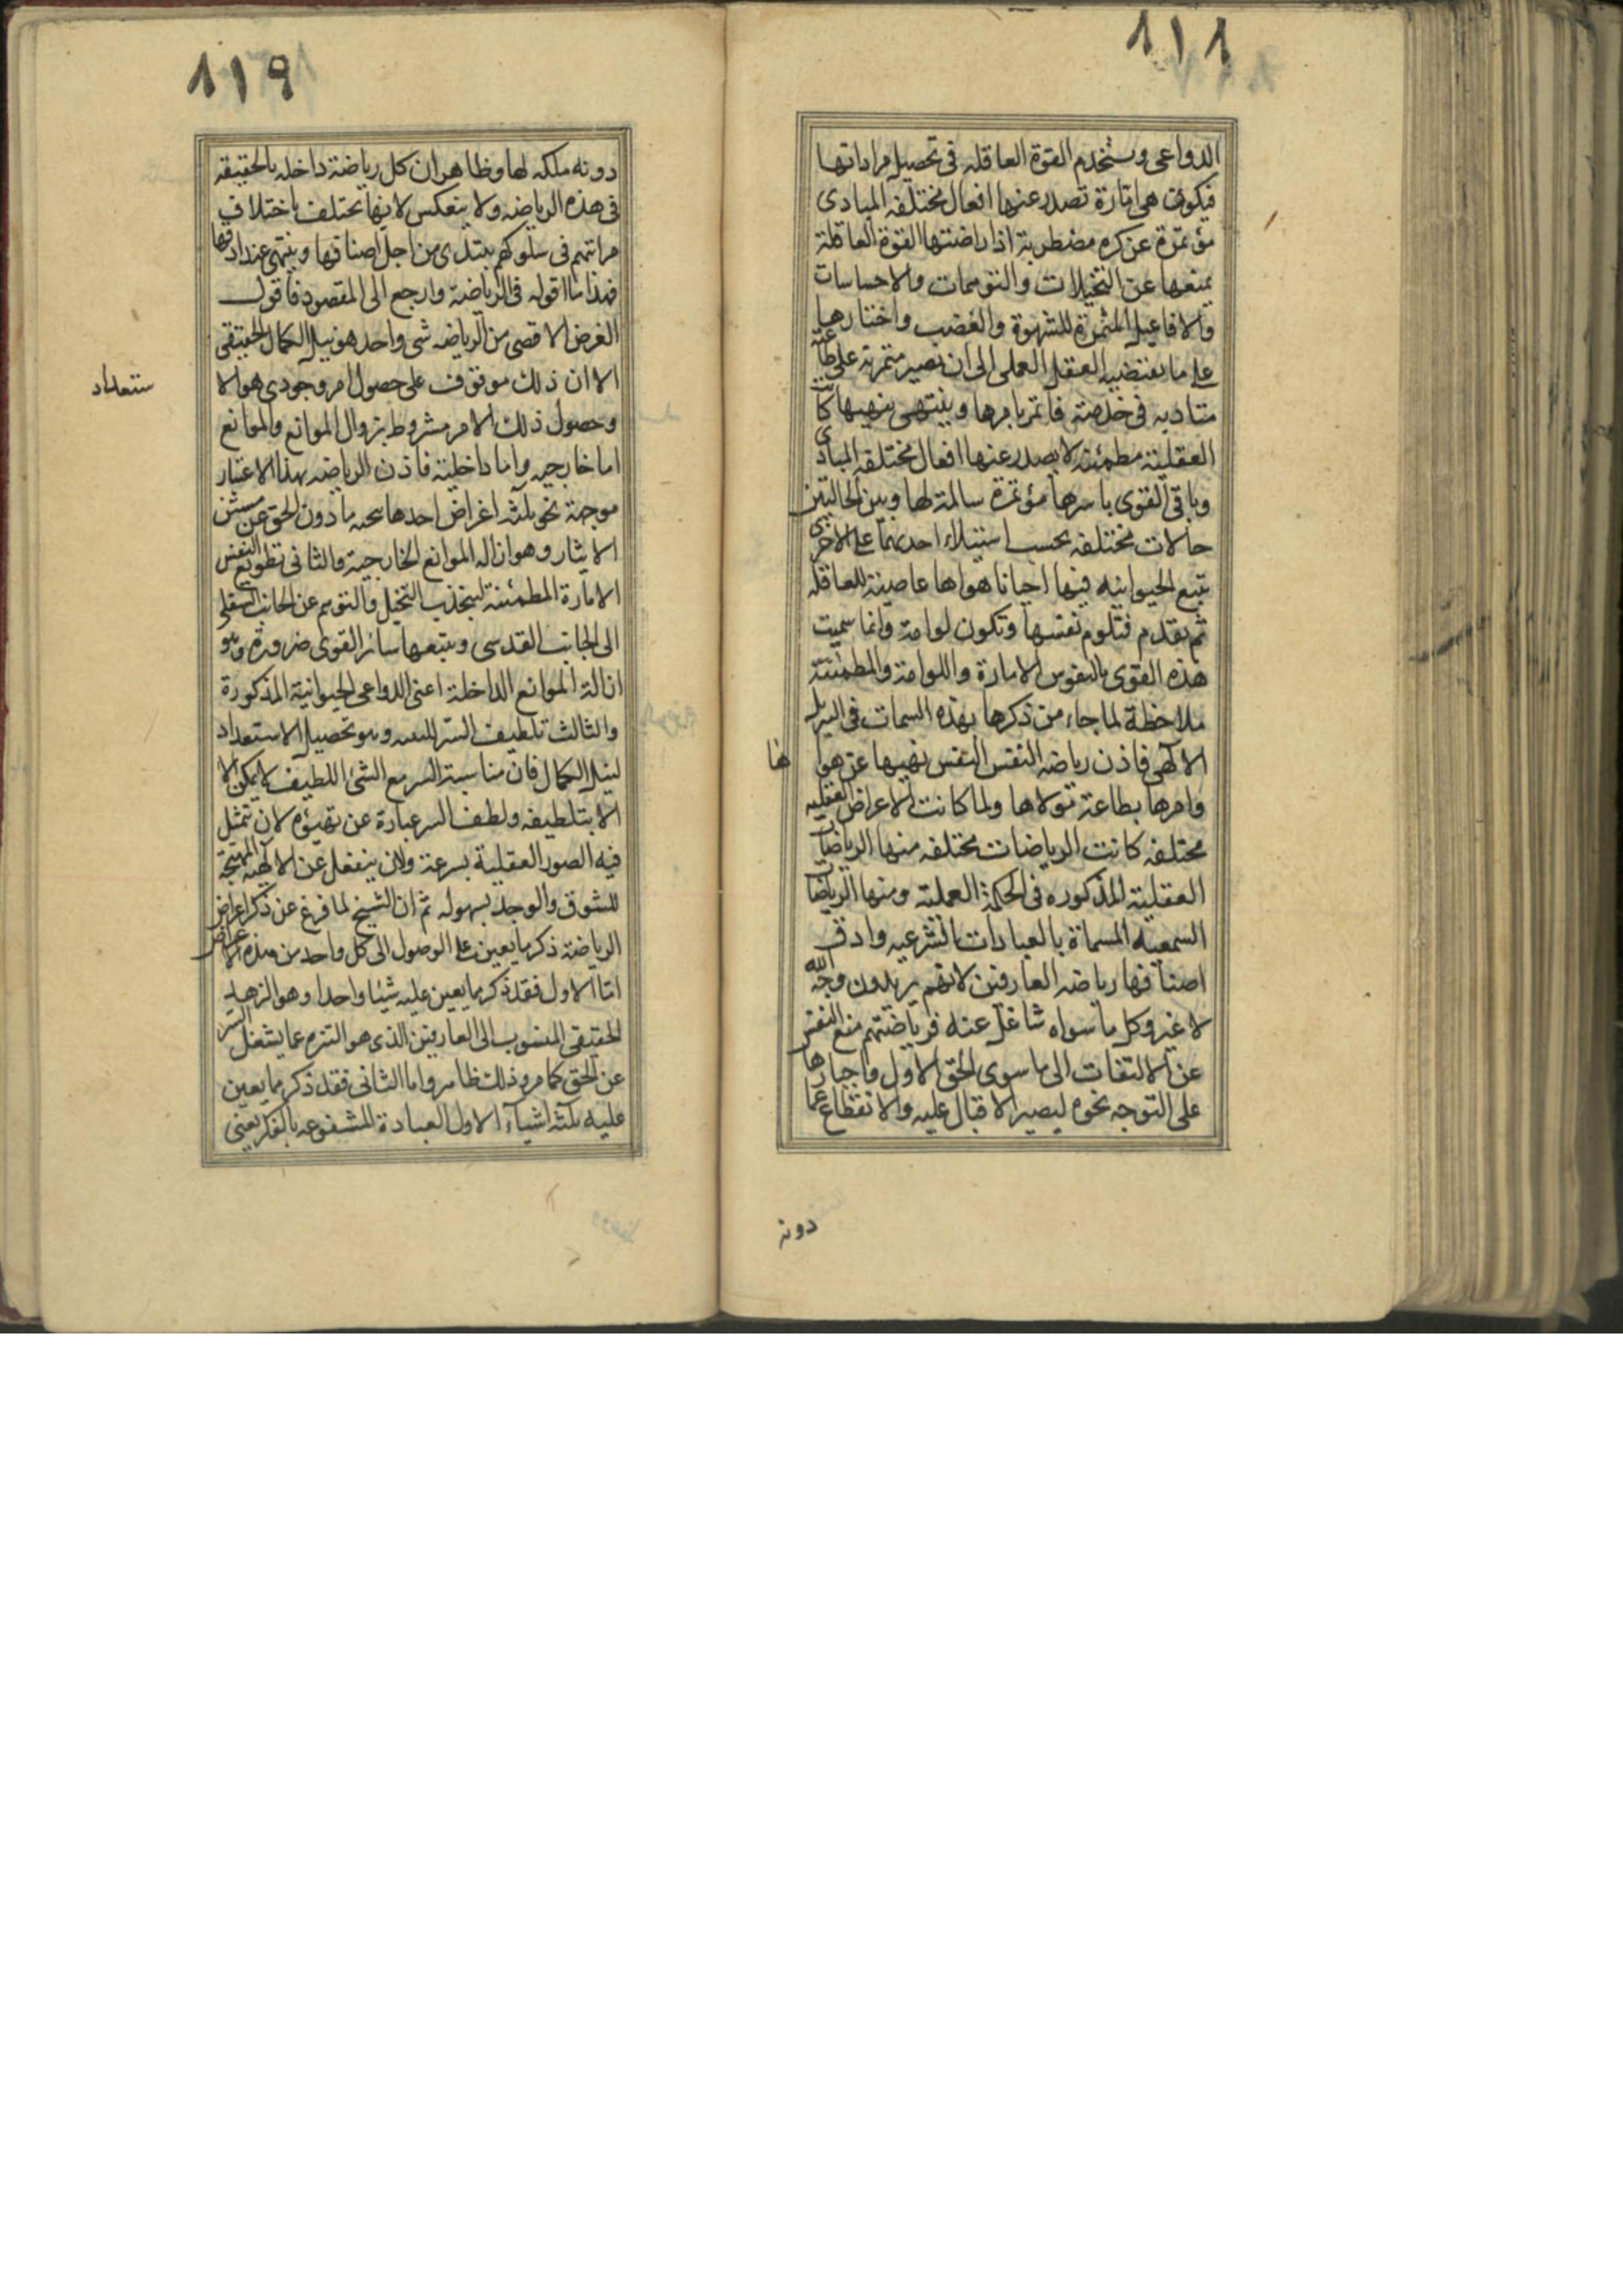 ١١٨
الدواعى وتستخدم القوة العاقله فى تحصيل مراداتها
فيكون هى امارة تصدر عنها افعال مختلفه المبادى
مؤتمرة عن كره مضطربة اذا راضتها القوة العاقلة
بمنعها عن التخيلات والتوهمات والاحساسات
والافاعيل المثيرة للشهوة والغضب واجبارها
على ما يقتضيه العقل العملى الى ان يصير متمرنة على طاعته
متادبه فى خدمته فاتمر بامرها وينتهى بنهيها كانت
العقلية مطمئنة لا يصدر عنها افعال مختلفه المبادى
وباقى القوى باسرها مؤتمرة سالمة لها وبين الحالتين
حالات مختلفه بحسب استيلاء احديهما على الاخرى
تتبع الحيوانيه فيها احيانا هواها عاصية للعاقله
ثم تقدم فتلوم نفسها وتكون لوامة وانما سميت
هذه القوى بالنفوس الامارة واللوامة والمطمئنة
ملاحظة لما جاء من ذكرها بهذه السمات فى التنزيل
الالهى فاذن رياضه النفس النفس نهيها عن هوا ها
وامرها بطاعة مولاها ولما كانت الاغراض العقليه
مختلفه كانت الرياضات مختلفه منها الرياضات
العقلية المذكوره فى الحكمة العملية ومنها الرياضات
السمعيه المسماة بالعبادات الشرعيه وادق
اصنافها رياضه العارفين لانهم يريدون وجه الله
لا غير وكل ما سواه شاغل عنه فرياضتهم منع النفس
عن الالتفات الى ما سوى الحق الاول واجبارها
على التوجه نحوه ليصير الاقبال عليه والانقطاع عما
دونه
١١٩
دونه ملكه لها وظاهر ان كل رياضة داخله بالحقيقه
فى هذه الرياضه ولا ينعكس لانها تختلف باختلاف
مراتبهم فى سلوكهم يبتدى من اجل اصنافها وينتهى عند ادقها
فهذا ما اقوله فى الرياضة وارجع الى المقصود فاقول
الغرض الاقصى من الرياضه شى واحد هو نيل الكمال الحقيقى
الا ان ذلك موقوف على حصول امر وجودى هو الا
ستعداد
وحصول ذلك الامر مشروط بزوال الموانع والموانع
اما خارجيه واما داخلية فاذن الرياضه بهذا الاعتبار
موجهة نحو ثلثه اغراض احدها تنحيه ما دون الحق عن مستن
الايثار وهو ازاله الموانع الخارجية والثانى تطويع النفس
الامارة المطمئنة لينجذب التخيل والتوهم عن الجانب السفلى
الى الجانب القدسى ويتبعها سائر القوى ضرورة وهو
ازالة الموانع الداخلة اعنى الدواعى الحيوانية المذكورة
والثالث تلطيف السر للتنبه وهو تحصيل الاستعداد
لنيل الكمال فان مناسبة السر مع الشئ اللطيف لا يمكن الا
الا بتلطيفه ولطف السر عبارة عن تهيؤه لان تتمثل
فيه الصور العقلية بسرعة ولان ينفعل عن الالهيه المهيجة
للشوق والوجد بسهوله ثم ان الشيخ لما فرغ عن ذكر اغراض
الرياضة ذكر ما يعين على الوصول الى كل واحد من هذه الاغراض
اما الاول فقد ذكر مما يعين عليه شيئا واحدا وهو الزهد
الحقيقى المنسوب الى العارفين الذى هو التنزه عما يشغل السر
عن الحق كما مر وذلك ظاهر واما الثانى فقد ذكر مما يعين
عليه ثلثه اشياء الاول العبادة المشفوعه بالفكر يعنى